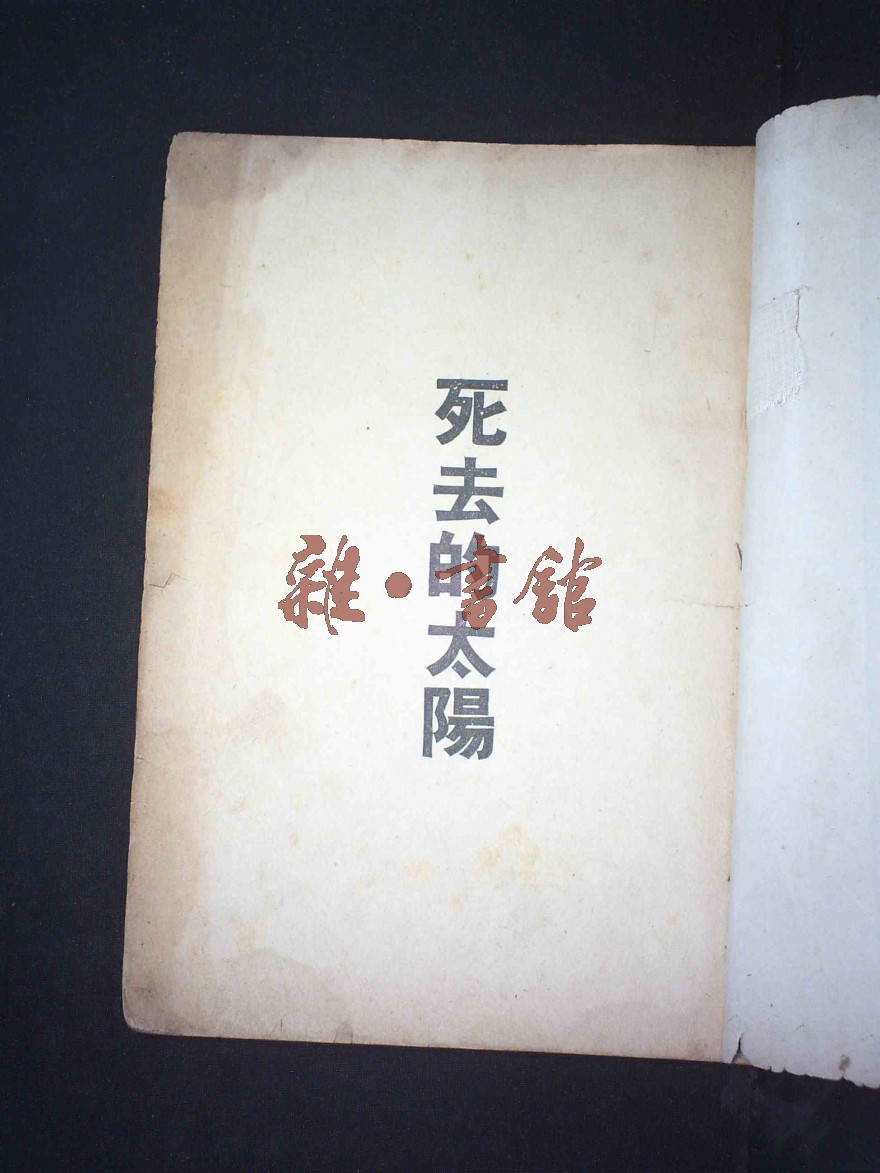 死去的太陽
雜·書館